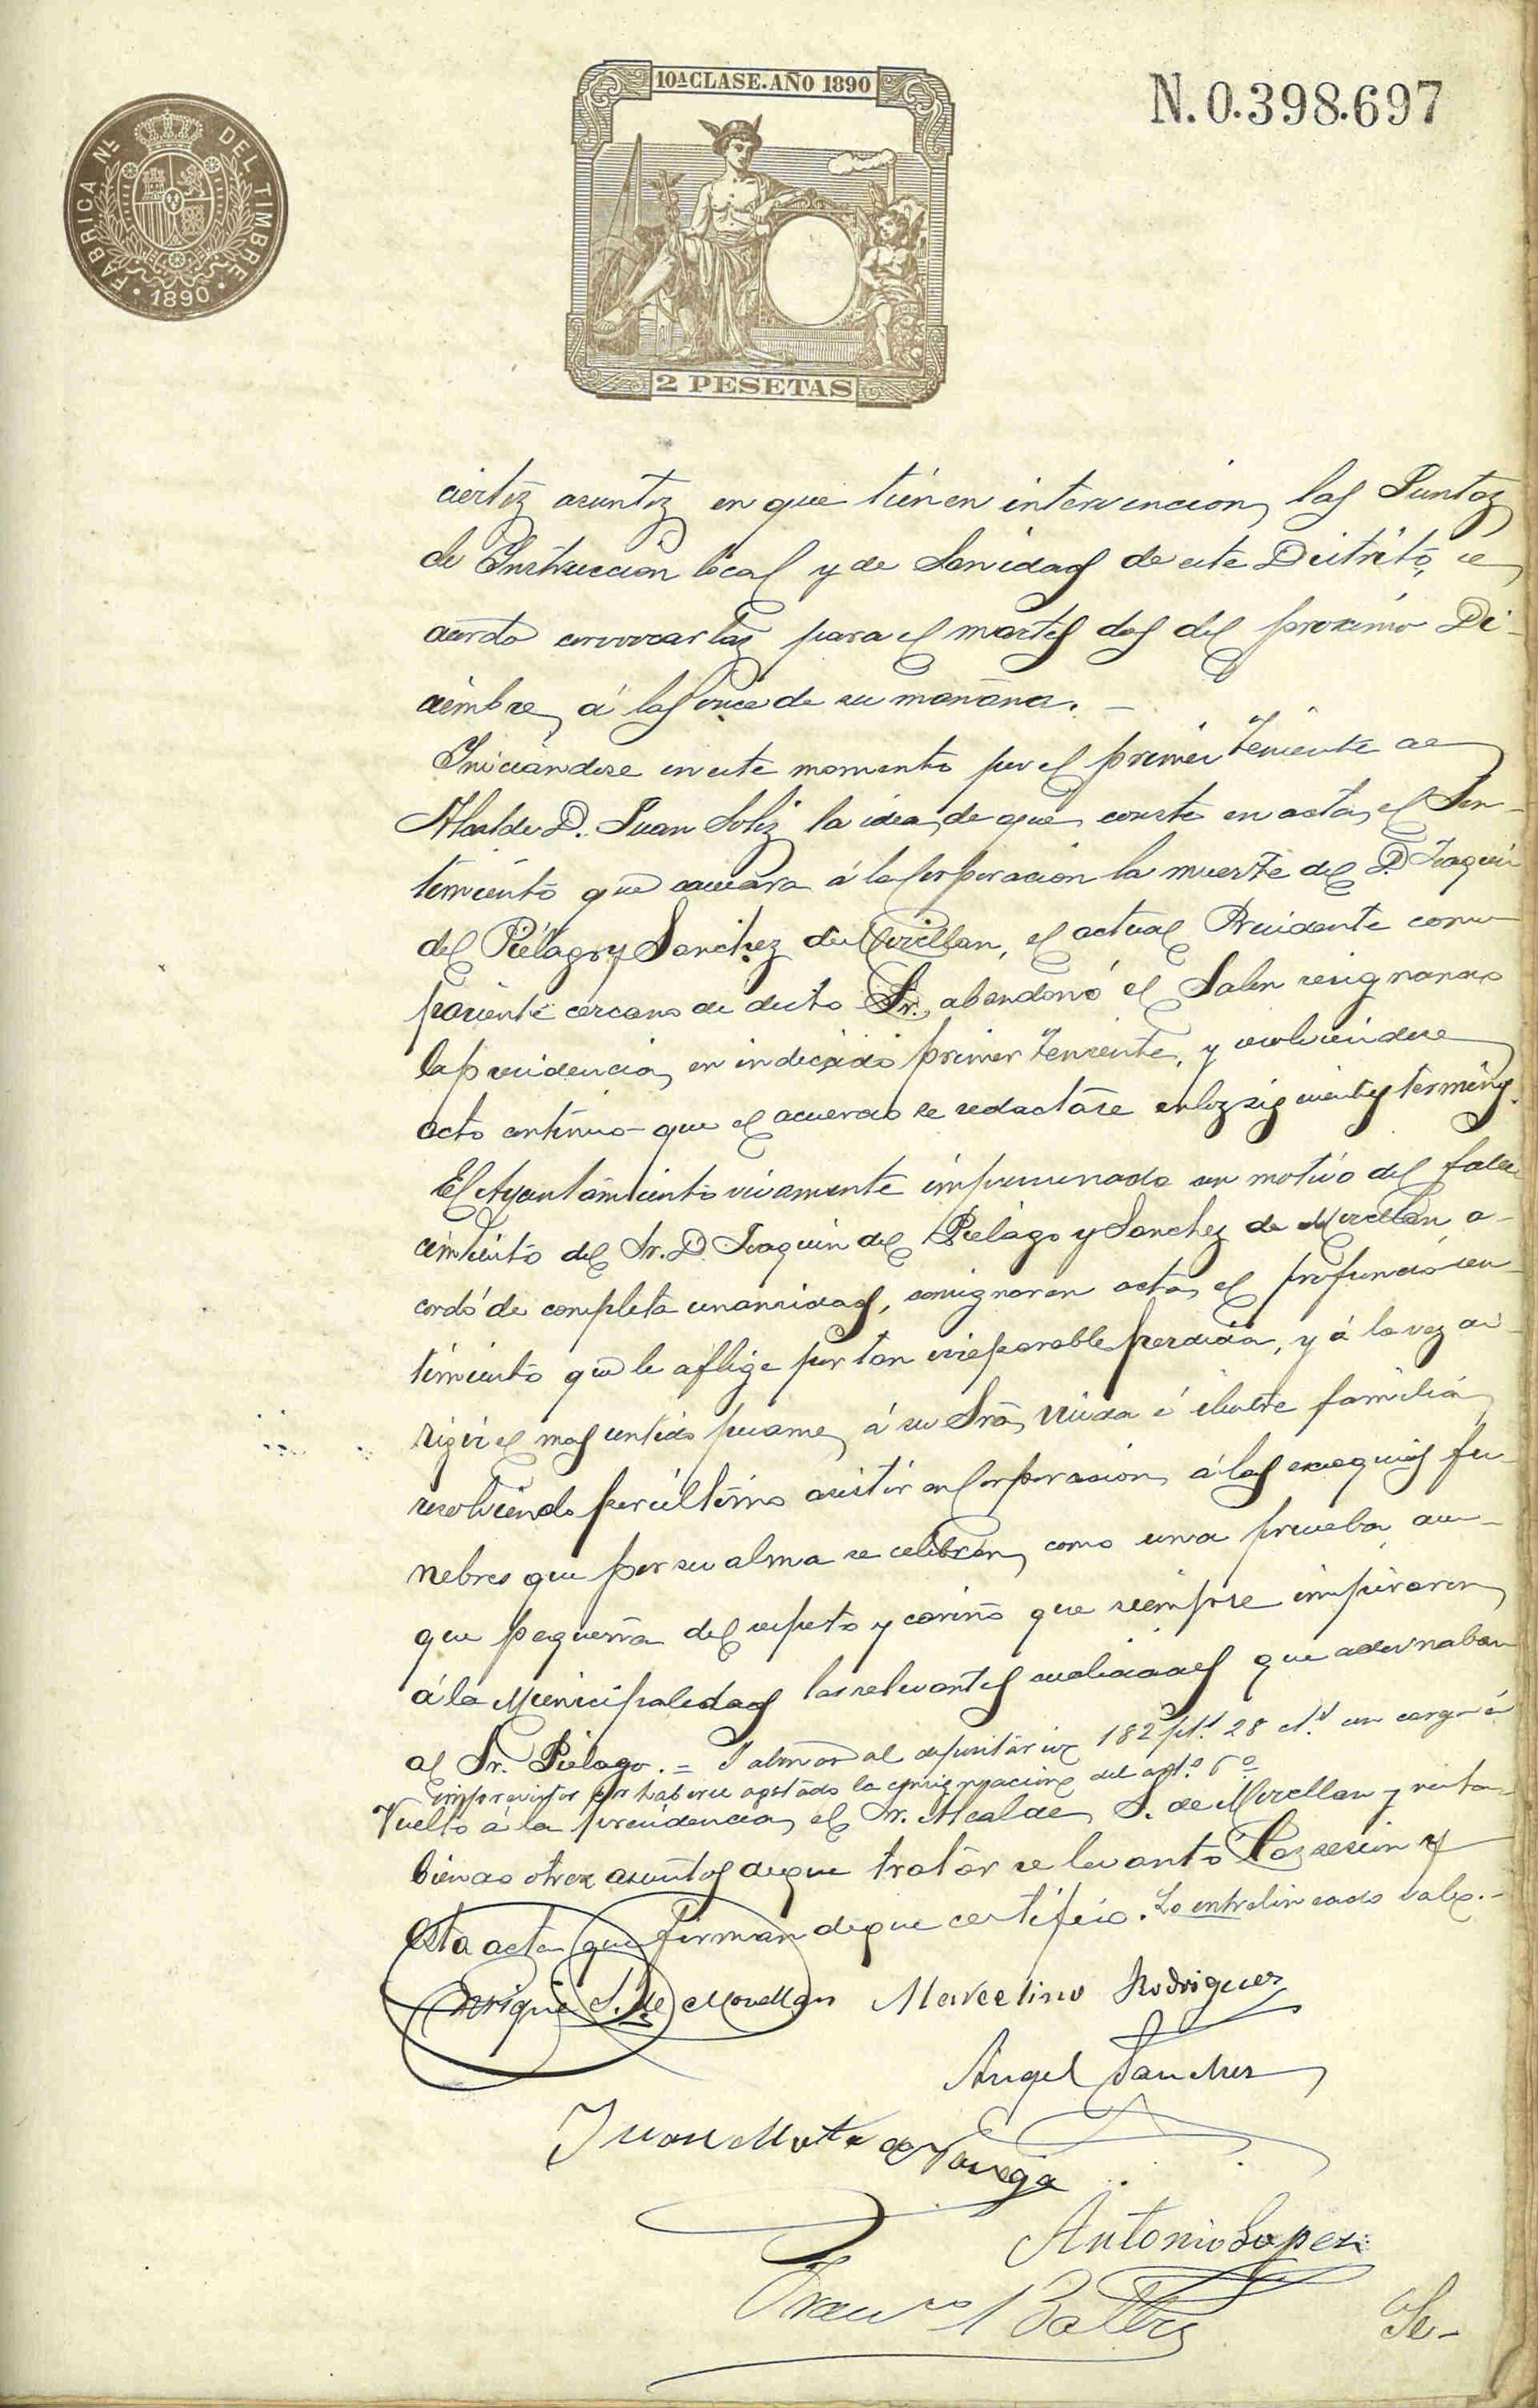 10ª CLASE. AÑO 1890
N. 0.398.697
FABRICA Nˡ DEL TIMBRE
1890
2 PESETAS
ciertos asuntos en que tienen intervencion las Juntas
de Instruccion local y de Sanidad de este Distrito, se
acordo convocarlas para el martes dos del proximo Di-
ciembre, á las once de su mañana. —
Iniciandose en este momento por el primer Teniente de
Alcalde D. Juan Soliz la idea de que conste en acta, el Sen-
timiento que causara á la Corporacion la muerte del D. Joaquin
del Piélago y Sanchez de Movellan, el actual Presidente como
pariente cercano de dicho Sr. abandonó el Salon resignando
la presidencia en indicado primer Teniente, y resolviendose
acto continuo que el acuerdo se redactáse en los siguientes terminos.
El Ayuntamiento vivamente impresionado con motivo del falle
cimiento del Sr. D. Joaquin del Piélago y Sanchez de Movellan, a-
cordó de completa unanimidad, consignar en acta, el profundo sen-
timiento que le aflige por tan irreparable perdida, y á la vez di-
rigir el mas sentido pesame, á su Srā. Viuda é ilustre familia,
resolviendo por último asistir en Corporacion, á las exequias fu-
nebres que por su alma se celebren, como una prueba, aun-
que pequeña del respeto y cariño que siempre inspiraron
á la Municipalidad las relevantes cualidades que adornaban
al Sr. Piélago. = Y abonar al depositario 182 pts. 28 cts. con cargo á
imprevistos por haberse agotado la consignacion del apto. 6º
Vuelto á la presidencia, el Sr. Alcalde, S. de Movellan y no ha-
biendo otros asuntos de que tratar se levantó la sesion y
esta acta que firman de que certifico. Lo entrelineado vale. -
Enrique S. de Movellan Marcelino Rodriguez
Angel Sanchez
Juan Mata de Noriega
Antonio Lopez
Franco
Se-